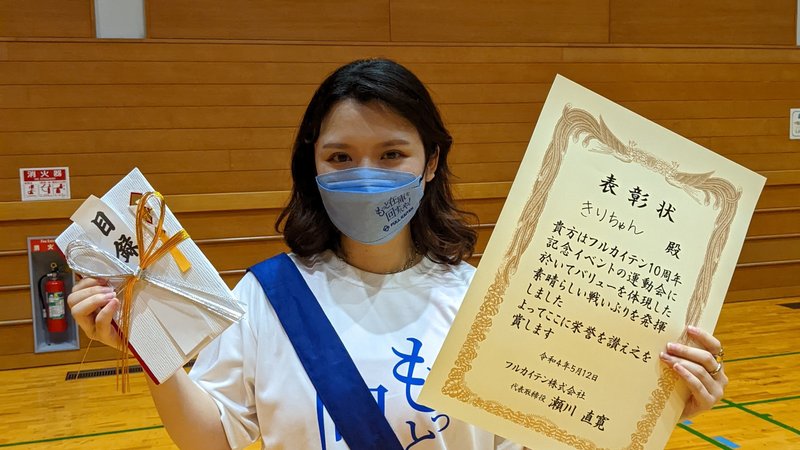 消火器
目録
もっと在庫を
回せ!
FULL KAITEN
もっと
表彰状
きりちゃん 殿
貴方はフルカイテン10周年
記念イベントの運動会に
於いてバリューを体現した
素晴らしい戦いぶりを発揮
しました
よってここに栄誉を讃え之を
賞します
令和4年5月12日
フルカイテン株式会社
代表取締役 瀬川 直寛